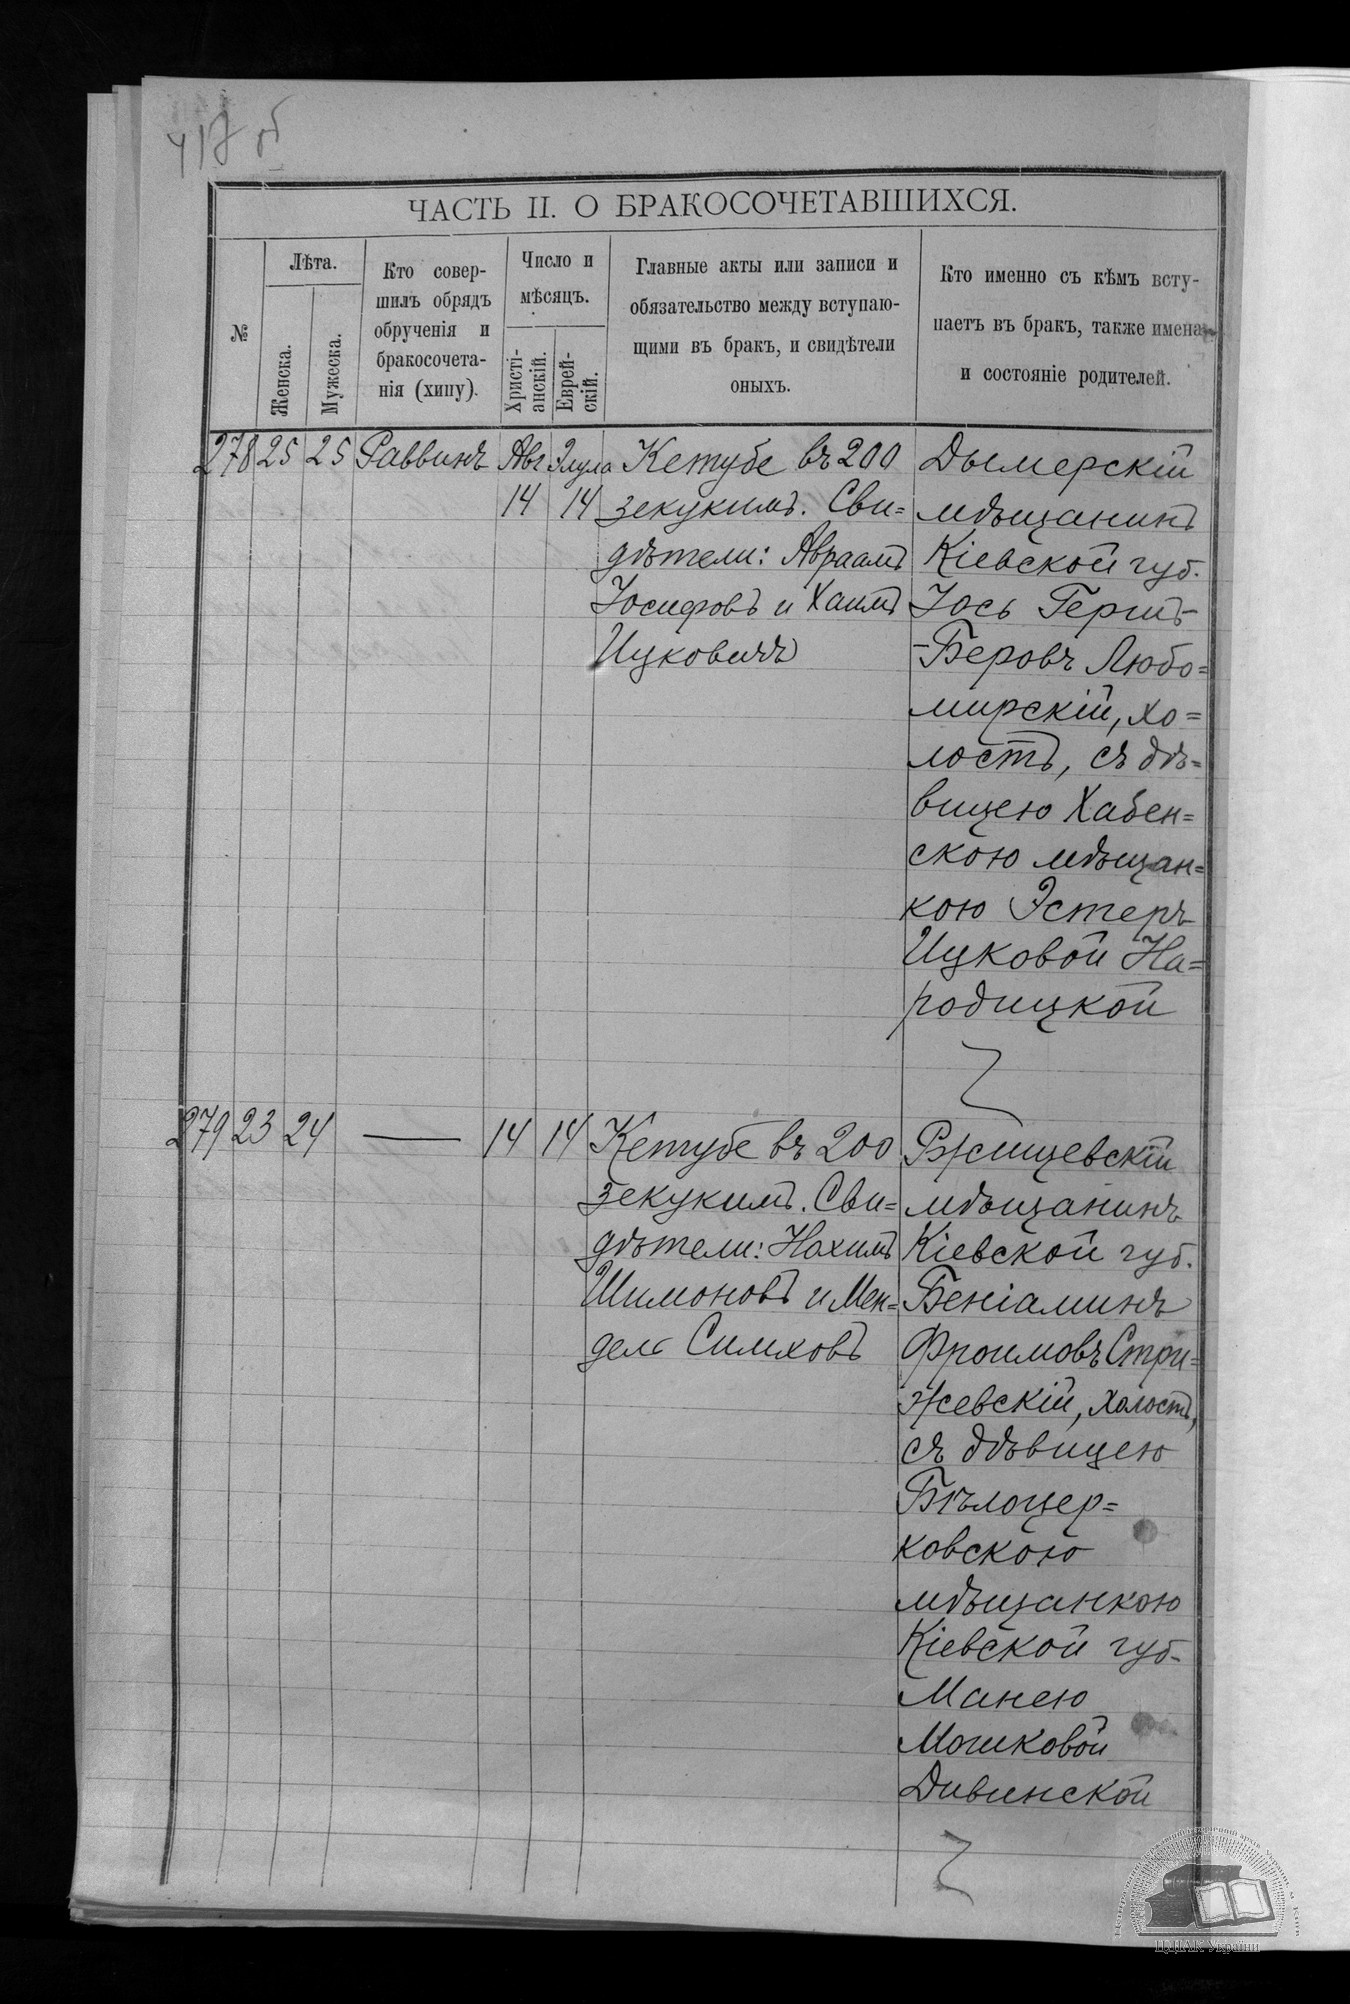 418 об
ЧАСТЬ II. О БРАКОСОЧЕТАВШИХСЯ.
№
Лѣта.
Женска.
Мужеска.
Кто совер-
шилъ обрядъ
обрученія и
бракосочета-
нія (хипу).
Число и
мѣсяцъ.
Христі-
анскій.
Еврей-
скій.
Главные акты или записи и
обязательство между вступаю-
щими въ бракъ, и свидѣтели
оныхъ.
Кто именно съ кѣмъ всту-
паетъ въ бракъ, также имена
и состояніе родителей.
278 25 25 Раввинъ Авг 14 Элула 14
Кетубе въ 200
зекукимъ. Сви=
дѣтели: Авраамъ
Іосифовъ и Хаимъ
Ицковичъ
Дымерскій
мѣщанинъ
Кіевской губ.
Іось Гершъ-
-Беровъ Любо=
мирскій, хо=
лостъ, съ дѣ=
вицею Хабен=
скою мѣщан=
кою Эстеръ
Ицковой На=
родицкой
279 23 24 — 14 14
Кетубе въ 200
зекукимъ. Сви=
дѣтели: Нохимъ
Шимоновъ и Мен=
дель Симховъ
Ржищевскій
мѣщанинъ
Кіевской губ.
Беніаминъ
Фроимовъ Стри=
жевскій, холостъ,
съ дѣвицею
Бѣлоцер=
ковскою
мѣщанкою
Кіевской губ.
Манею
Мошковой
Дивинской
ЦДІАК України